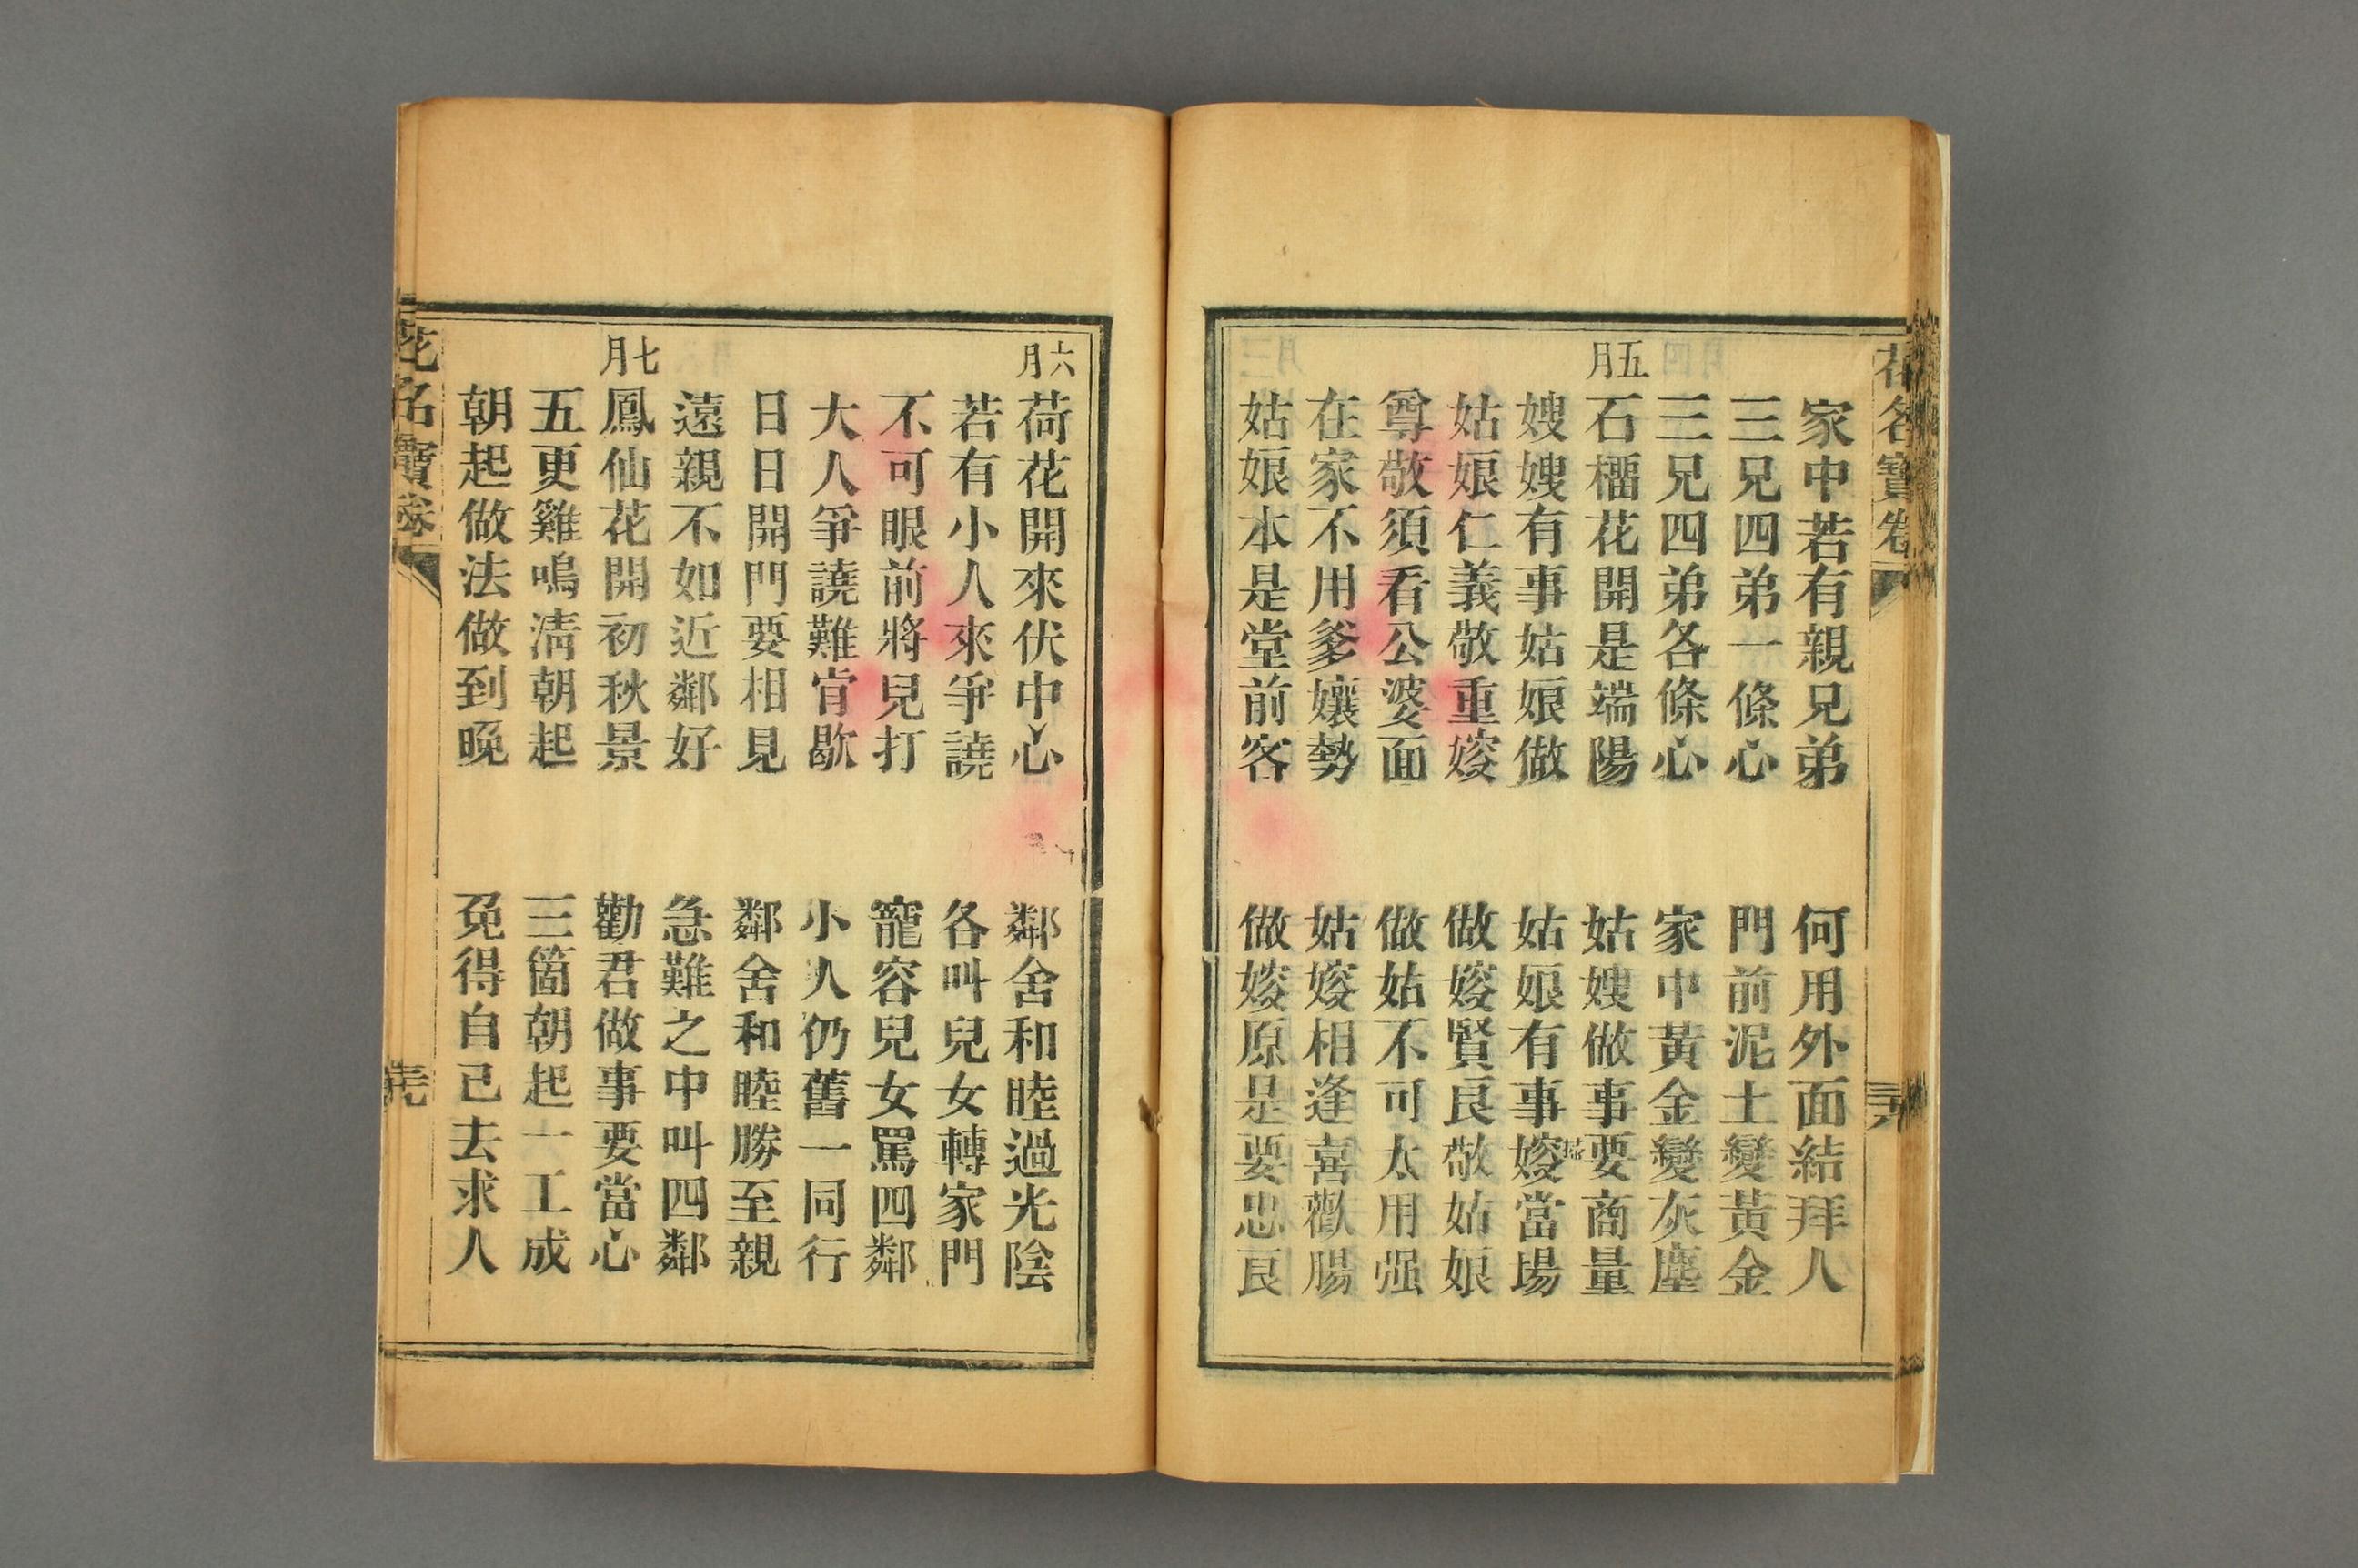 花名寶卷
家中若有親兄弟　何用外面結拜人
三兄四弟一條心　門前泥土變黃金
三兄四弟各條心　家中黃金變灰塵
五月
石橊花開是端陽　姑嫂做事要商量
嫂嫂有事姑娘做　姑娘有事㛐當場
姑娘仁義敬重㛐　做㛐賢良敬姑娘
尊敬須看公婆面　做姑不可太用强
在家不用爹孃勢　姑㛐相逢喜歡腸
姑娘本是堂前客　做㛐原是要忠良
六月
荷花開來伏中心　鄰舍和睦過光陰
若有小人來爭譊　各叫兒女轉家門
不可眼前將兒打　寵容兒女罵四鄰
大人爭譊難肯歇　小人仍舊一同行
日日開門要相見　鄰舍和睦勝至親
遠親不如近鄰好　急難之中叫四鄰
七月
鳳仙花開初秋景　勸君做事要當心
五更雞鳴淸朝起　三箇朝起一工成
朝起做法做到晚　免得自己去求人
花名寶卷